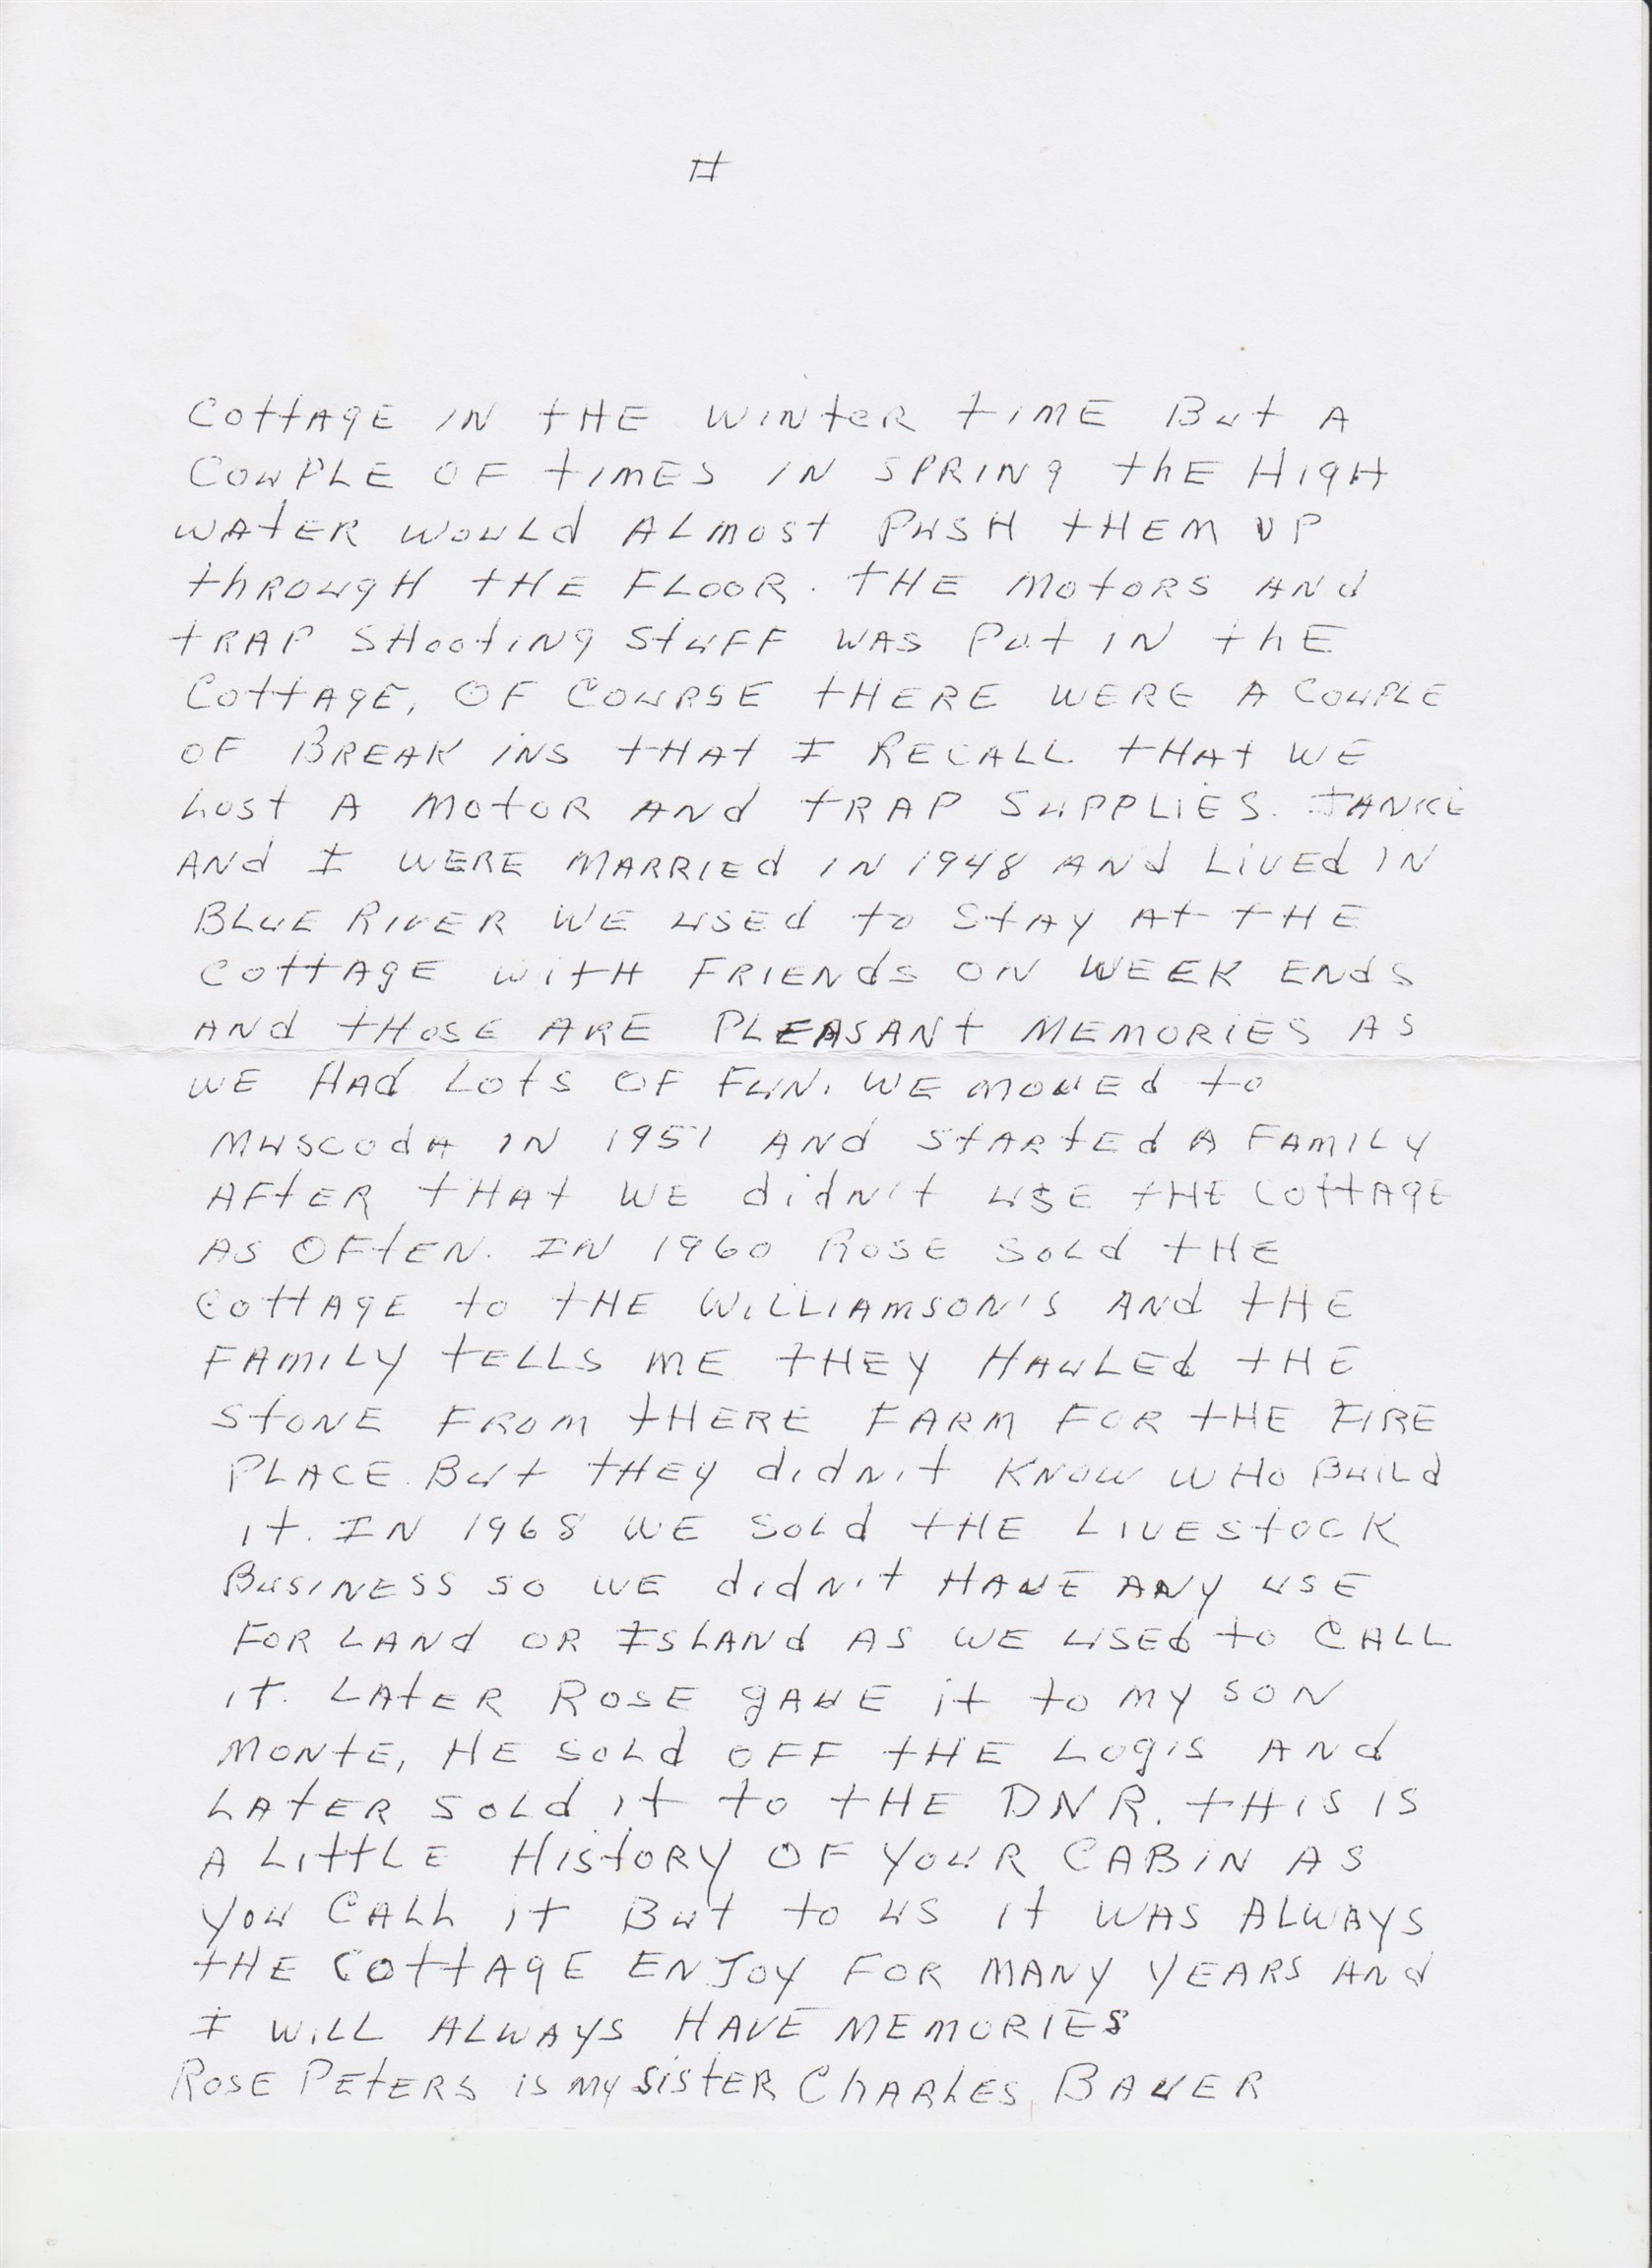 II
COttAgE IN tHE WINteR tIME But A
COuPLE OF tIMES IN SPRINg thE HIgH
WAtER WOuLd ALMOSt PuSH tHEM UP
thROugH tHE FLOOR. tHE MOtORS ANd
tRAP SHOOtINg StuFF WAS Put IN thE
COttAgE, OF COuRSE tHERE WERE A COuPLE
OF BREAK iNS tHAt I RECALL tHAt WE
LOSt A MOtOR ANd tRAP SuPPLiES. JANICE
ANd I WERE MARRIEd IN 1948 ANd LIVEd IN
BLuE RIVER WE uSEd to StAy At tHE
COttAgE WitH FRIENdS ON WEEK ENdS
ANd tHOSE ARE PLEASANt MEMORIES AS
WE HAd LOtS OF FuN. WE MOVEd to
MuSCOdA IN 1951 ANd StARtEd A FAMILY
AFtER tHAt WE didN't uSE tHE COttAgE
AS OFtEN. IN 1960 ROSE SOLd tHE
COttAgE to tHE WILLIAMSON'S ANd tHE
FAMILY tELLS ME tHEY HAuLEd tHE
StONE FROM tHERE FARM FOR tHE FIRE
PLACE. But tHEY didN't KNOW WHO BuILd
it. IN 1968 WE SOLd tHE LIVEStOCK
BuSINESS SO WE didN't HAVE ANY uSE
FOR LANd OR ISLANd AS WE uSEd tO CALL
it. LAtER ROSE gAVE it to MY SON
MONtE, HE SOLd OFF tHE LOg'S ANd
LAtER SOLd it to tHE DNR. tHIS IS
A LIttLE HIStORY OF YOuR CABIN AS
YOu CALL it But to uS it WAS ALWAYS
tHE COttAgE ENJOY FOR MANY YEARS ANd
I WILL ALWAYS HAVE MEMORIES
ROSE PEtERS iS MY SiStER ChARLES BAuER